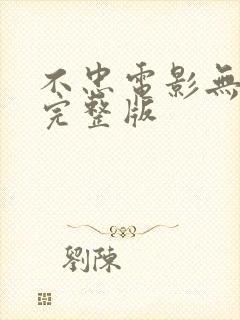 不忠電影無
完整版
劉陳